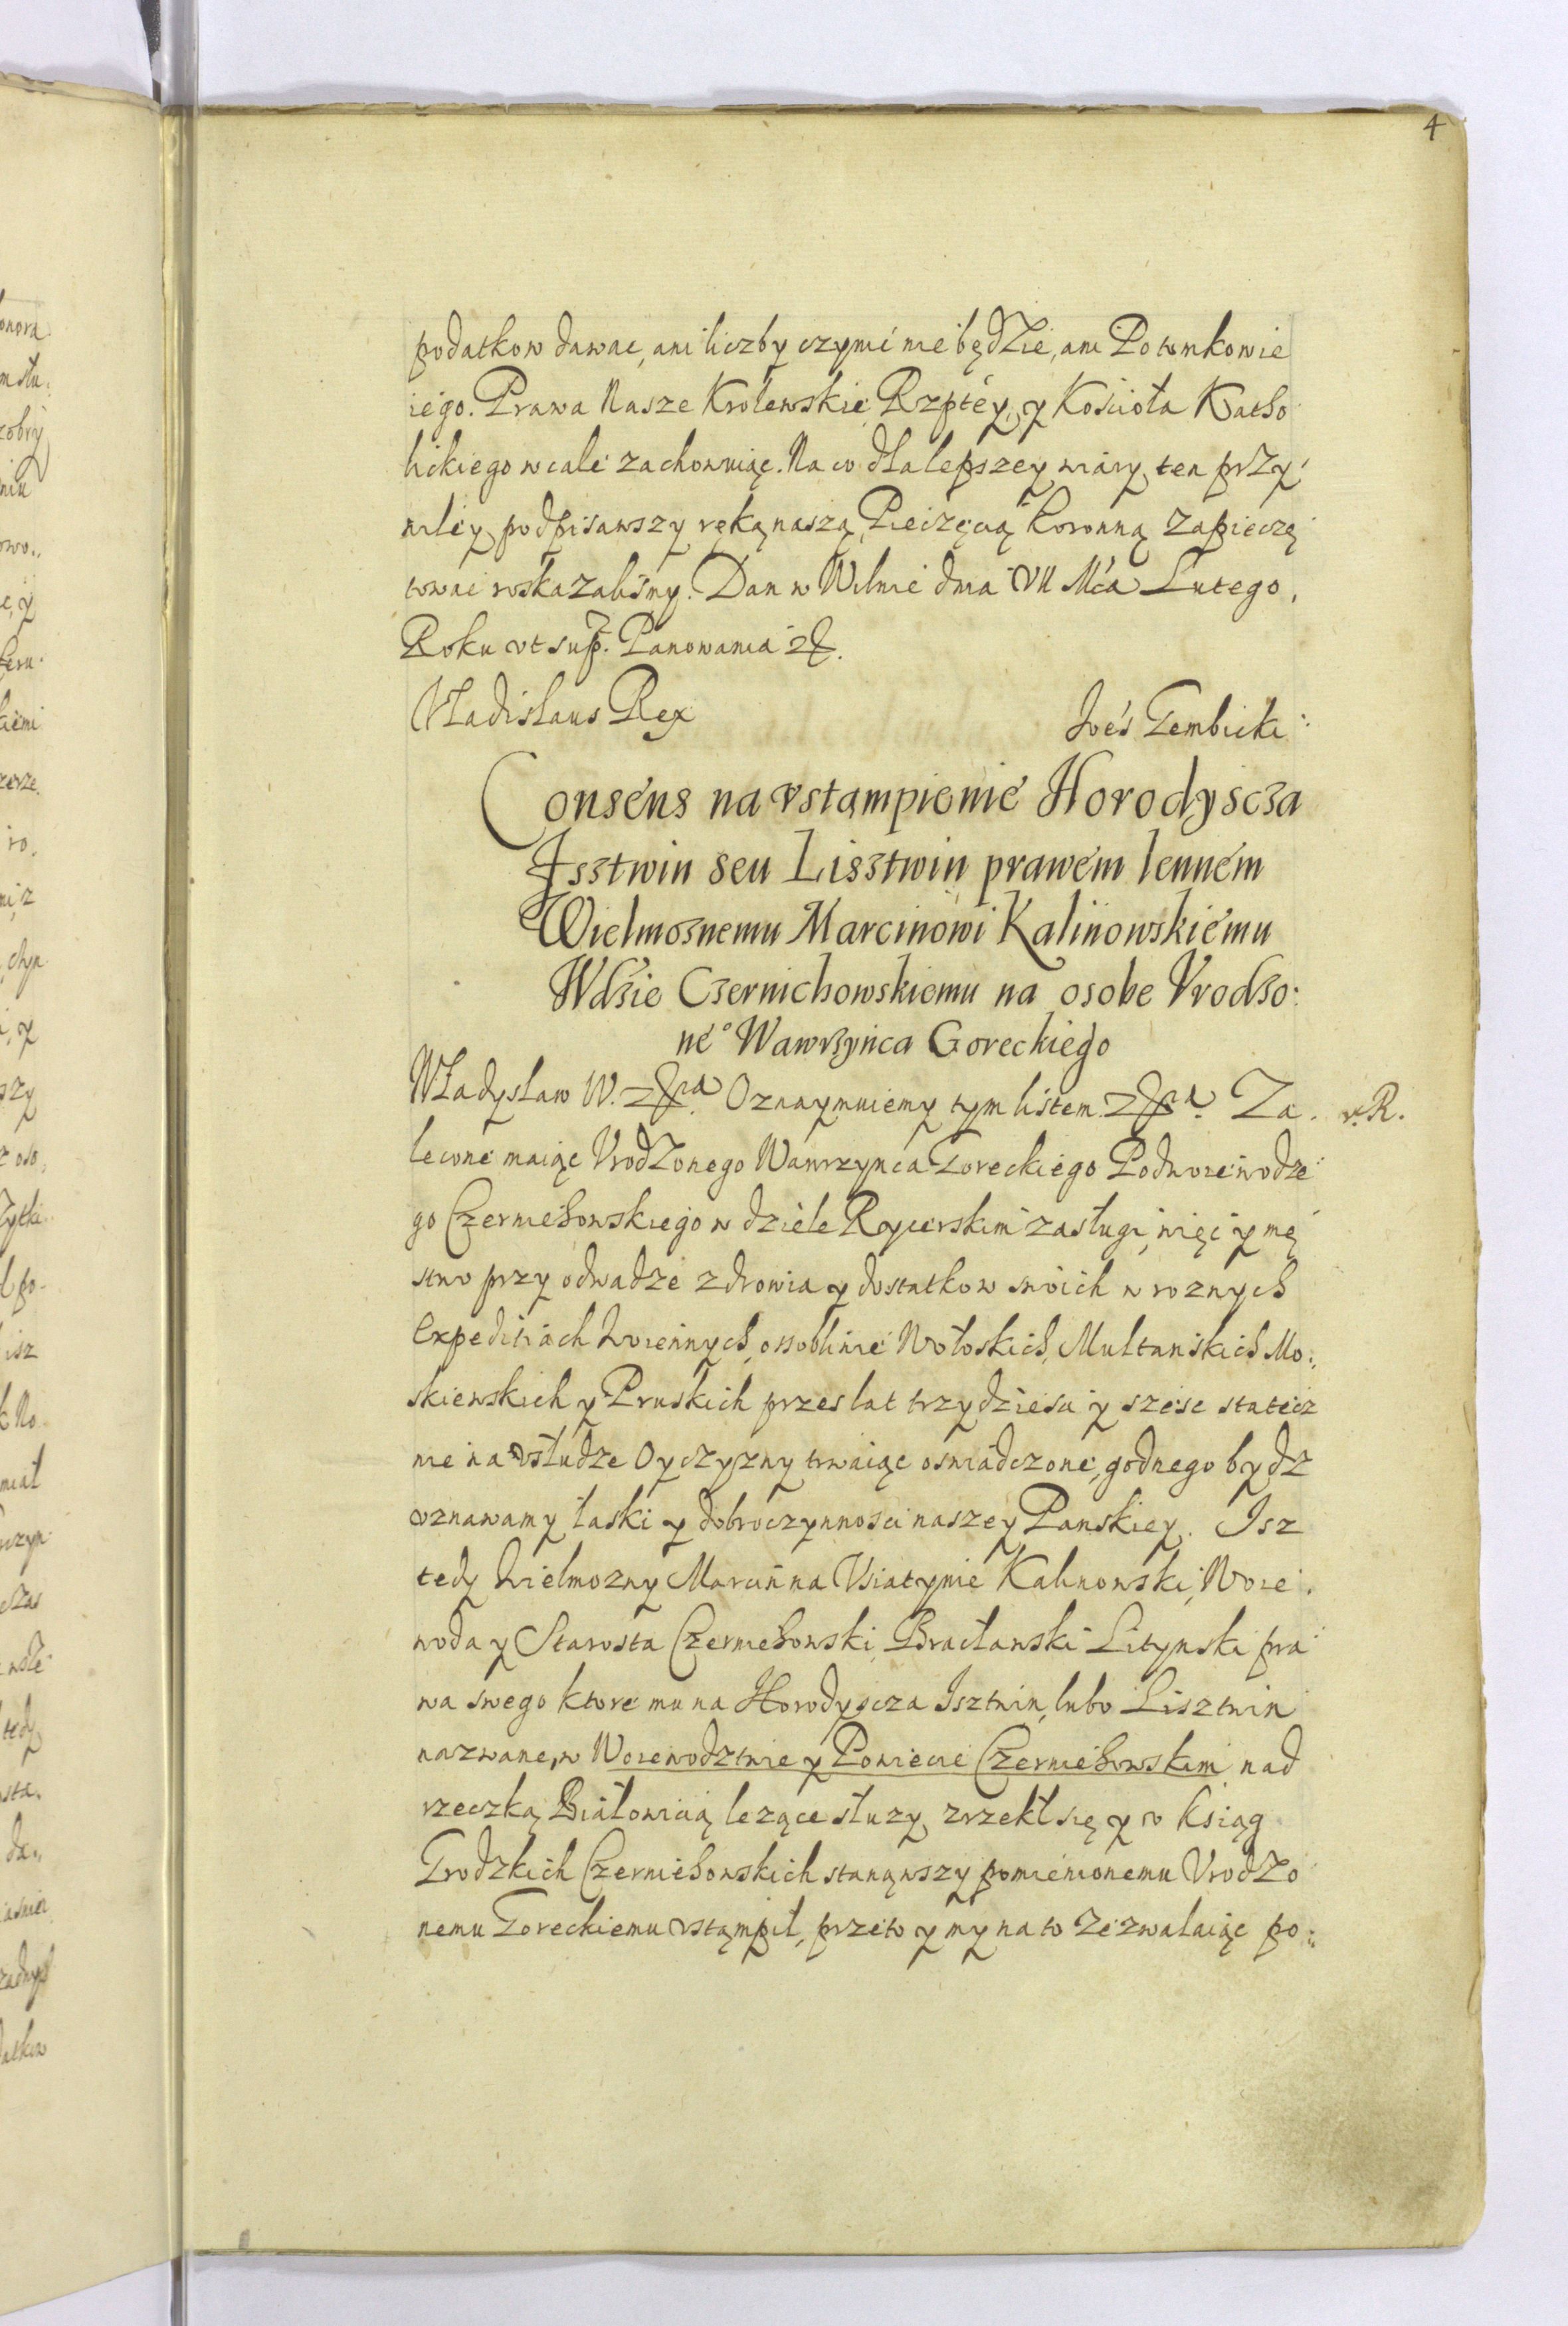 4
podatkow dawac, ani liczby czynić nie będzie, ani Potomkowie
iego. Prawa Nasze Krolewskie, Rzptéy, y Kościoła Katho
lickiego wcale zachowuiąc. Na co dla lepszey wiary, ten przy
wiley podpisawszy ręką naszą, Pieczęcią Koronną zapieczę
towac roskazaliśmy. Dan w Wilnie dnia VII Mca Lutego,
Roku vt sup. Panowania
Vladislaus Rex
Joés Gembicki
Consens na vstampienie Horodyscza
Jsstwin seu Lisstwin prawem lennem
Wielmoznemu Marcinowi Kalinowskiemu
Wdzie Czernichowskiemu na osobe Vrodzo:
né° Wawrzynca Goreckiego
Władysław W. Oznaymuiemy tym listem Za. R.
lecone maiąc Vrodzonego Wawrzynca Goreckiego Podwoiewodze
go Czerniehowskiego w dziele Rycerskim zasługi, więc y mę
stwo przy odwadze zdrowia y dostatkow swoich w roznych
Expeditiach Woiennych, ossobliwie Wołoskich, Multanskich Mo:
skiewskich y Pruskich przes lat trzydziesci y szesc statecz
nie na vsłudze Oyczyzny trwaiąc oswiadczone, godnego bydz
vznawamy łaski y dobroczynnosci naszey Panskiey. Isz
tedy Wielmozny Marcin na Vsiatynie Kalinowski, Woie
woda y Starosta Czerniehowski, Bracławski Litynski pra
wa swego ktore mu na Horodyscza Isztwin, lubo Lisztwin
nazwane, w Woiewodztwie y Powiecie Czerniehowskim nad
rzeczką Białowicą lezące słuzy, zrzekł się y v Ksiąg
Grodzkich Czerniehowskich stanąwszy pomienionemu Vrodzo
nemu Goreckiemu vstąmpił, przeto y my na to zezwalaiąc po: